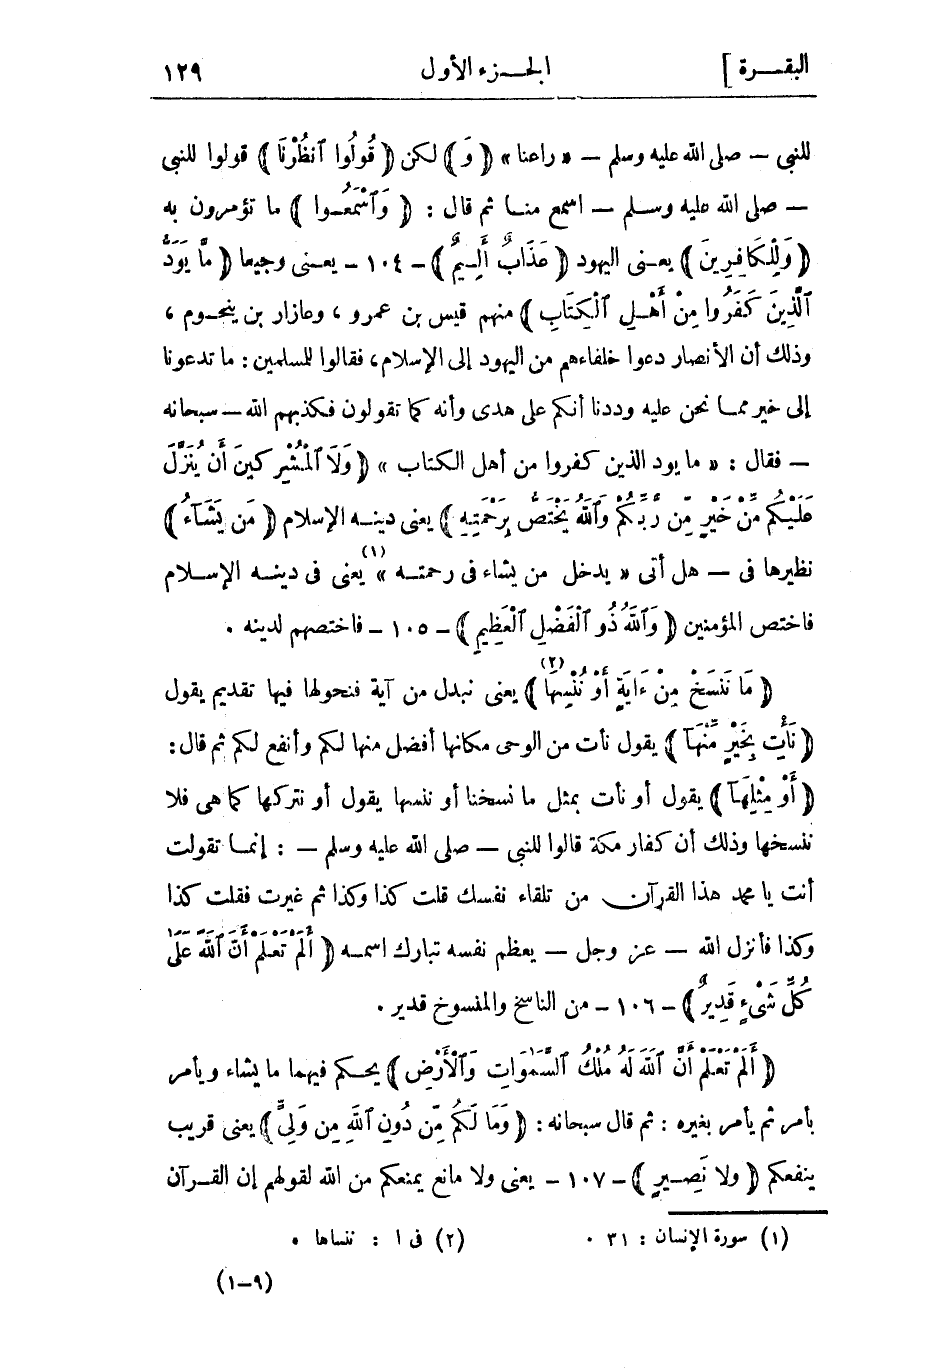 البقــرة ] الجــزء الأول ١٢٩
للنبى — صلى الله عليه وسلم — « راعنا » ﴿ وَ ﴾ لكن ﴿ قُولُوا ٱنظُرْنَا ﴾ قولوا للنبى
— صلى الله عليه وســلم — اسمع منــا ثم قال : ﴿ وَٱسْمَعُــوا ﴾ ما تؤمرون به
﴿ وَلِلْكَافِرِينَ ﴾ يعــنى اليهود ﴿ عَذَابٌ أَلِــيمٌ ﴾ – ١٠٤ – يعــنى وجيعا ﴿ مَّا يَوَدُّ
ٱلَّذِينَ كَفَرُوا مِنْ أَهْــلِ ٱلْكِتَابِ ﴾ منهم قيس بن عمرو ، وعازار بن ينحــوم ،
وذلك أن الأنصار دعوا خلفاءهم من اليهود إلى الإسلام، فقالوا للمسلمين : ما تدعونا
إلى خير ممــا نحن عليه وددنا أنكم على هدى وأنه كما تقولون فكذبهم الله — سبحانه
— فقال : « ما يود الذين كفروا من أهل الكتاب » ﴿ وَلَا ٱلْمُشْرِكِينَ أَن يُنَزَّلَ
عَلَيْكُم مِّنْ خَيْرٍ مِّن رَّبِّكُمْ وَٱللَّهُ يَخْتَصُّ بِرَحْمَتِهِ ﴾ يعنى دينــه الإسلام ﴿ مَن يَشَآءُ ﴾
نظيرها فى — هل أتى « يدخل من يشاء فى رحمتــه » (١) يعنى فى دينــه الإســلام
فاختص المؤمنين ﴿ وَٱللَّهُ ذُو ٱلْفَضْلِ ٱلْعَظِيمِ ﴾ – ١٠٥ – فاختصهم لدينه .
﴿ مَا نَنسَخْ مِنْ ءَايَةٍ أَوْ نُنْسِهَا ﴾ (٢) يعنى نبدل من آية فنحولها فيها تقديم يقول
﴿ نَأْتِ بِخَيْرٍ مِّنْهَآ ﴾ يقول نأت من الوحى مكانها أفضل منها لكم وأنفع لكم ثم قال :
﴿ أَوْ مِثْلِهَآ ﴾ يقول أو نأت بمثل ما نسخنا أو ننسها يقول أو نتركها كما هى فلا
ننسخها وذلك أن كفار مكة قالوا للنبى — صلى الله عليه وسلم — : إنمــا تقولت
أنت يا محمد هذا القرآن من تلقاء نفسك قلت كذا وكذا ثم غيرت فقلت كذا
وكذا فأنزل الله — عز وجل — يعظم نفسه تبارك اسمــه ﴿ أَلَمْ تَعْــلَمْ أَنَّ ٱللَّهَ عَلَىٰ
كُلِّ شَىْءٍ قَدِيرٌ ﴾ – ١٠٦ – من الناسخ والمنسوخ قدير .
﴿ أَلَمْ تَعْلَمْ أَنَّ ٱللَّهَ لَهُ مُلْكُ ٱلسَّمَٰوَاتِ وَٱلْأَرْضِ ﴾ يحــكم فيهما ما يشاء ويأمر
بأمر ثم يأمر بغيره : ثم قال سبحانه : ﴿ وَمَا لَكُم مِّن دُونِ ٱللَّهِ مِن وَلِىٍّ ﴾ يعنى قريب
ينفعكم ﴿ ولا نَصِــيرٍ ﴾ – ١٠٧ – يعنى ولا مانع يمنعكم من الله لقولهم إن القــرآن
(١) سورة الإنسان : ٣١ . (٢) فى ا : ننساها .
(١–٩)